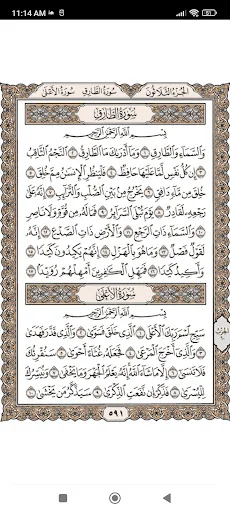 11:14 AM
51
الجزء الثلاثون سورة الطارق سورة الأعلى
سورة الطارق
بسم الله الرحمن الرحيم
والسماء والطارق ١ وما أدراك ما الطارق ٢ النجم الثاقب
٣ إن كل نفس لما عليها حافظ ٤ فلينظر الإنسان مم خلق ٥
خلق من ماء دافق ٦ يخرج من بين الصلب والترائب ٧ إنه على
رجعه لقادر ٨ يوم تبلى السرائر ٩ فما له من قوة ولا ناصر
١٠ والسماء ذات الرجع ١١ والأرض ذات الصدع ١٢ إنه
لقول فصل ١٣ وما هو بالهزل ١٤ إنهم يكيدون كيدا
١٥ وأكيد كيدا ١٦ فمهل الكافرين أمهلهم رويدا ١٧
سورة الأعلى
بسم الله الرحمن الرحيم
سبح اسم ربك الأعلى ١ الذي خلق فسوى ٢ والذي قدر فهدى
٣ والذي أخرج المرعى ٤ فجعله غثاء أحوى ٥ سنقرئك
فلا تنسى ٦ إلا ما شاء الله إنه يعلم الجهر وما يخفى ٧ ونيسرك
لليسرى ٨ فذكر إن نفعت الذكرى ٩ سيذكر من يخشى ١٠
٥٩١